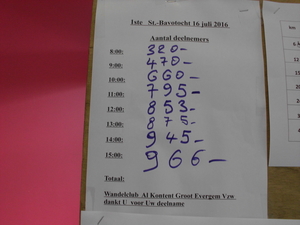 1ste St.-Bavotocht 16 juli 2016
Aantal deelnemers
8:00: 320-
9:00: 470-
10:00: 660-
11:00: 795-
12:00: 853-
13:00: 875-
14:00: 945-
15:00: 966-
Totaal:
Wandelclub Al Kontent Groot Evergem Vzw
dankt U voor Uw deelname
km